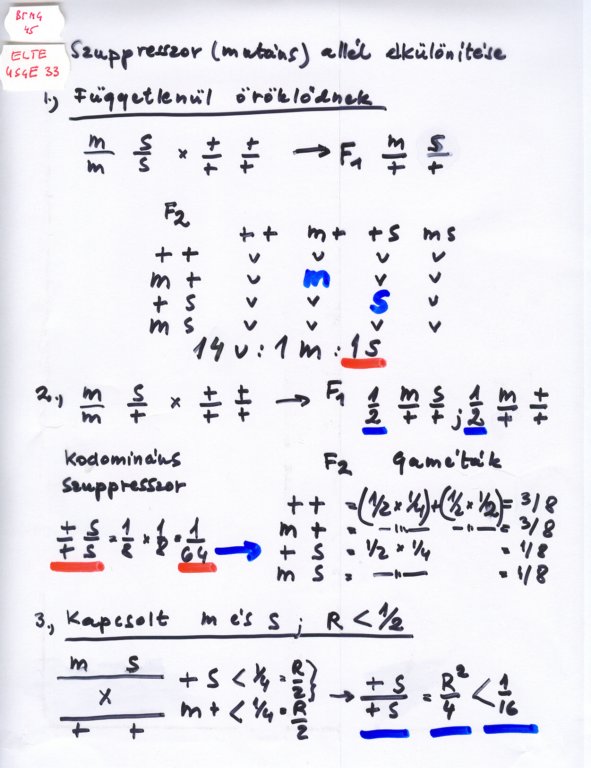 BFNG
45
ELTE
U54E 33
Szuppresszor (mutáns) allél elkülönítése
1.) Függetlenül öröklődnek
m/m s/s × +/+ +/+ → F1 m/+ s/+
F2
++ m+ +s ms
++ v v v v
m+ v m v v
+s v v s v
ms v v v v
14 v : 1 m : 1 s
2.) m/m s/+ × +/+ +/+ → F1 1/2 m/+ s/+ ; 1/2 m/+ +/+
Kodomináns
szuppresszor
F2 gaméták
++ = (1/2 × 1/4) + (1/2 × 1/2) = 3/8
m+ = —〃— —〃— = 3/8
+s = 1/2 × 1/4 = 1/8
ms = —〃— = 1/8
+s/+s = 1/8 × 1/8 = 1/64 →
3.) Kapcsolt m és s ; R < 1/2
m s
×
+ +
+s < 1/4 = R/2 }
m+ < 1/4 = R/2
→ +s/+s = R²/4 < 1/16